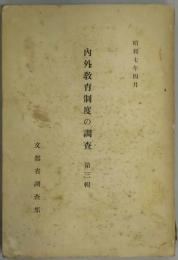 昭和七年四月
内外教育制度の調査 第三輯
文部省調査部